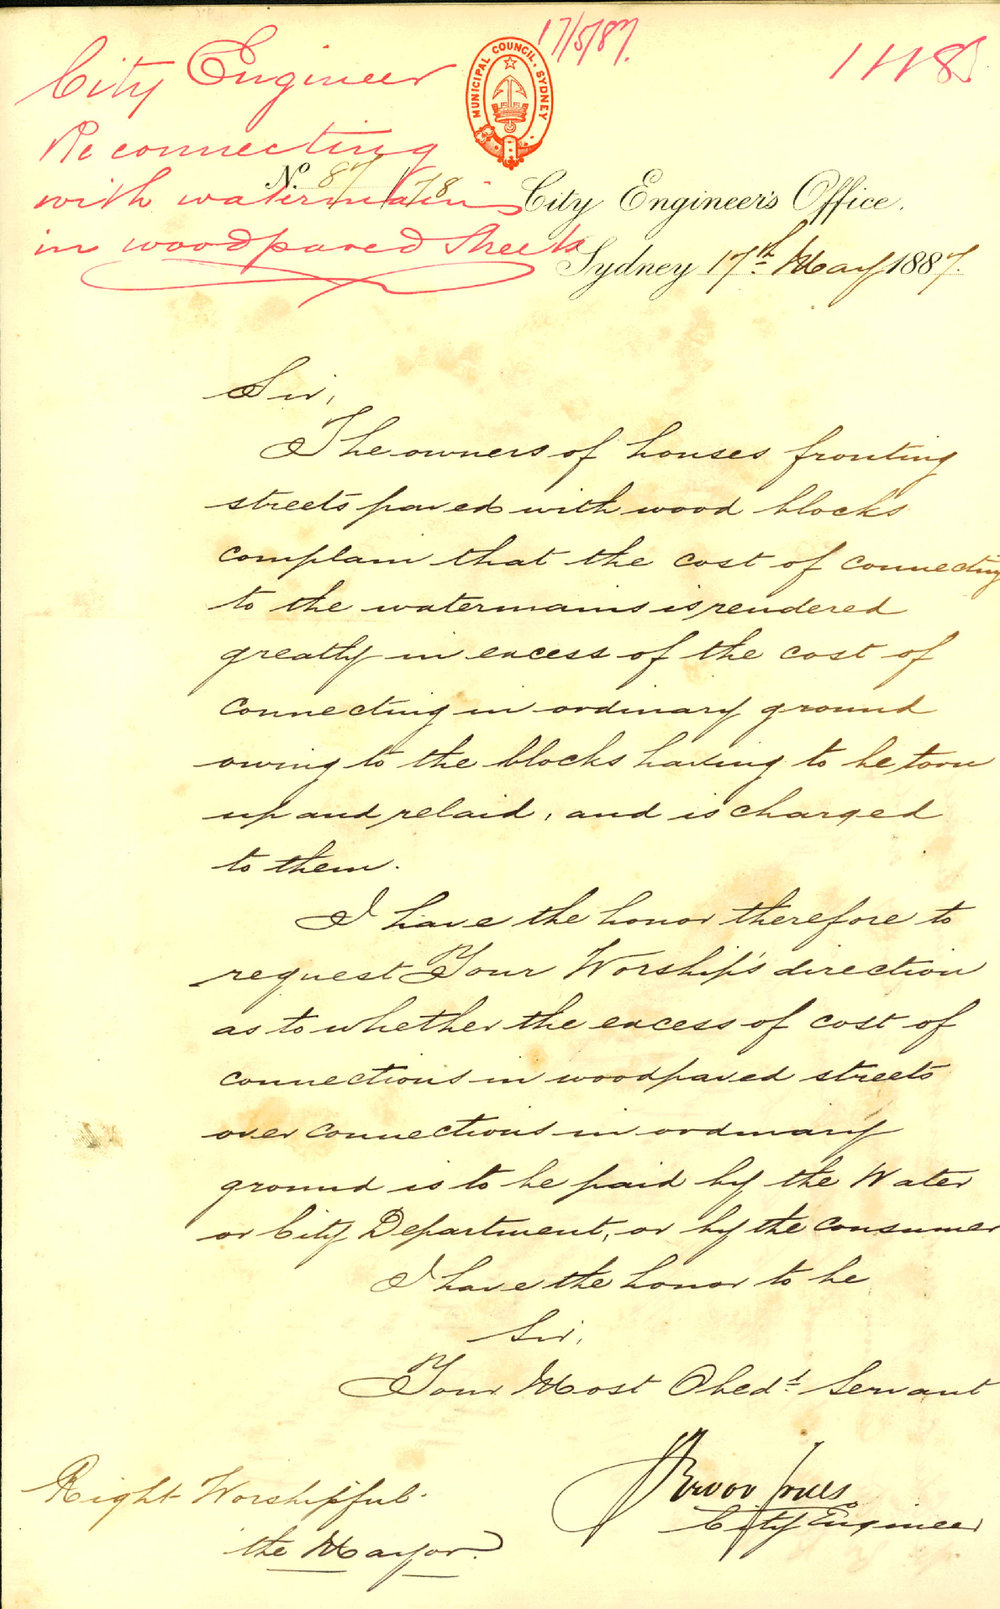 17/5/87.
City Engineer
Re connecting
with watermains
in woodpaved Streets
MUNICIPAL COUNCIL. SYDNEY
No. 87/178 City Engineer's Office.
Sydney 17th May 1887.
Sir,
The owners of houses fronting
streets paved with wood blocks
complain that the cost of connecting
to the watermains is rendered
greatly in excess of the cost of
connecting in ordinary ground
owing to the blocks having to be torn
up and relaid, and is charged
to them.
I have the honor therefore to
request Your Worship's direction
as to whether the excess of cost of
connections in woodpaved streets
over connections in ordinary
ground is to be paid by the Water
or City Department, or by the consumer
I have the honor to be
Sir,
Your Most Obedt Servant
City Engineer
Right Worshipful
the Mayor.